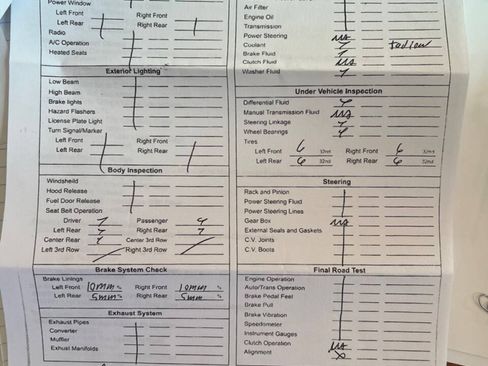 Power Window
Left Front Right Front
Left Rear Right Rear
Radio
A/C Operation
Heated Seats
Exterior Lighting
Low Beam
High Beam
Brake lights
Hazard Flashers
License Plate Light
Turn Signal/Marker
Left Front Right Front
Left Rear Right Rear
Body Inspection
Windsheild
Hood Release
Fuel Door Release
Seat Belt Operation
Driver Passenger
Left Rear Right Rear
Center Rear Center 3rd Row
Left 3rd Row Right 3rd Row
Brake System Check
Brake Linings
Left Front 10mm % Right Front 10mm %
Left Rear 5mm % Right Rear 5mm %
Exhaust System
Exhaust Pipes
Converter
Muffler
Exhust Manifolds
Air Filter
Engine Oil
Transmission
Power Steering NA
Coolant
Brake Fluid
Clutch Fluid NA
Washer Fluid
Under Vehicle Inspection
Differential Fluid
Manual Transmission Fluid NA
Steering Linkage
Wheel Bearings
Tires
Left Front 6 32nd Right Front 6 32nd
Left Rear 6 32nd Right Rear 6 32nd
Steering
Rack and Pinion
Power Steering Fluid
Power Steering Lines
Gear Box NA
External Seals and Gaskets
C.V. Joints
C.V. Boots
Final Road Test
Engine Operation
Auto/Trans Operation
Brake Pedal Feel
Brake Pull
Brake Vibration
Speedometer
Instrument Gauges
Clutch Operation NA
Alignment X